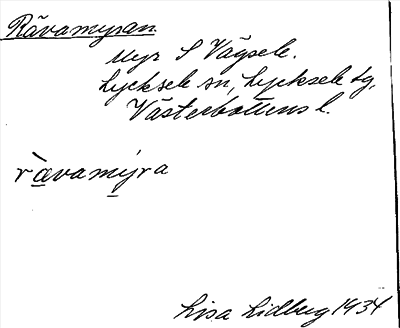 Rävamyran.
Myr S Vägsele.
Lycksele sn, Lycksele tg,
Västerbottens l.
rà̱vamy̱ra
Lisa Lidberg 1934